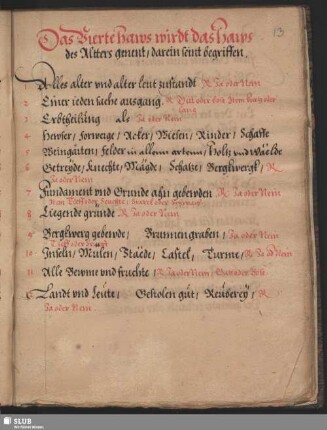 13
Das Vierte haws wirdt das haws
des Altters genent, darein seint begriffen
1 Alles alter vnd alter leut zustandt R Ja oder Nein
2 Einer ieden sache ausgang R
3 Erbtheilung als Ja oder Nein
4 Hewser, Forwerge, Acker, Wiesen, Rinder, Schaffe
5 Weingarten, felder in allem artenn, Holtz vnd Wielde
6 Getreyde, Knechte, Mägde, Schatze, Bergkwergk, R
Ja oder Nein
7 Fundament vnd Grunde aller gebewden R Ja oder Nein
8 Liegende grunde R Ja oder Nein
9 Bergkwerg gebewde, Brunnengraben, Ja oder Nein
10 Inseln, Mulen, Staede, Castel, Turme, R Ja od Nein
11 Alle Bewme vnd fruchte, R Ja oder Nein, Gutt oder Böse
12 Landt vnd Leute, Gestolen gut, Reuberey, R
Ja oder Nein
SLUB